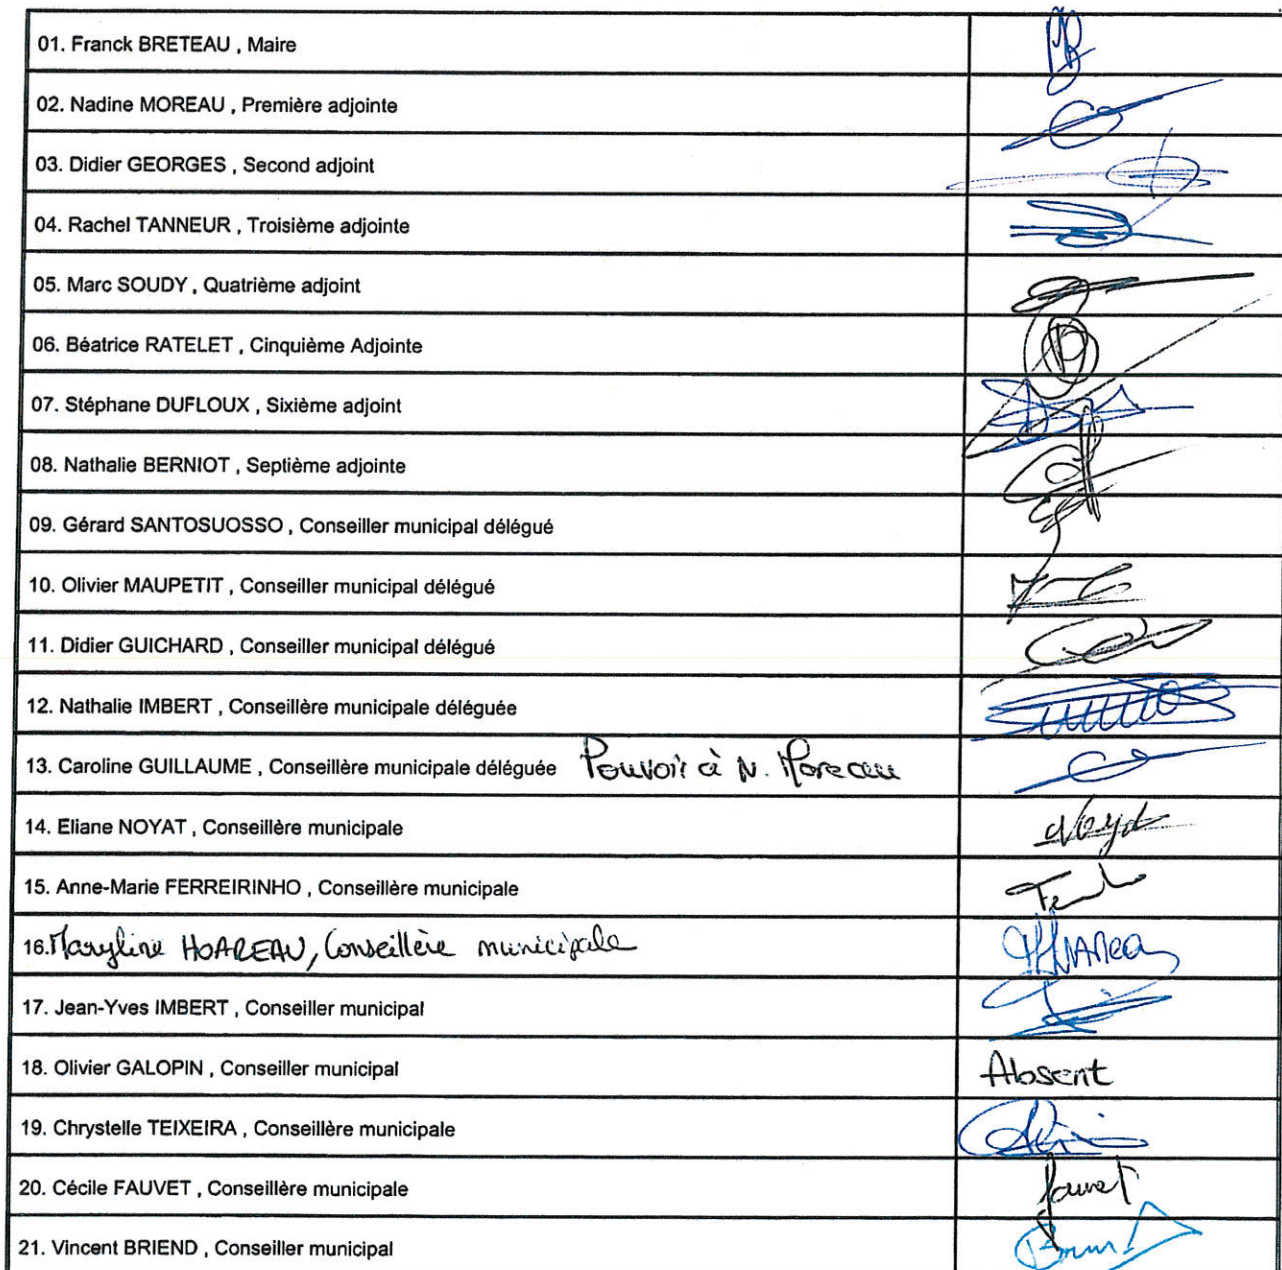 01. Franck BRETEAU , Maire
02. Nadine MOREAU , Première adjointe
03. Didier GEORGES , Second adjoint
04. Rachel TANNEUR , Troisième adjointe
05. Marc SOUDY , Quatrième adjoint
06. Béatrice RATELET , Cinquième Adjointe
07. Stéphane DUFLOUX , Sixième adjoint
08. Nathalie BERNIOT , Septième adjointe
09. Gérard SANTOSUOSSO , Conseiller municipal délégué
10. Olivier MAUPETIT , Conseiller municipal délégué
11. Didier GUICHARD , Conseiller municipal délégué
12. Nathalie IMBERT , Conseillère municipale déléguée
13. Caroline GUILLAUME , Conseillère municipale déléguée Pouvoir à N. Moreau
14. Eliane NOYAT , Conseillère municipale
15. Anne-Marie FERREIRINHO , Conseillère municipale
16. Maryline HOAREAU, Conseillère municipale
17. Jean-Yves IMBERT , Conseiller municipal
18. Olivier GALOPIN , Conseiller municipal Absent
19. Chrystelle TEIXEIRA , Conseillère municipale
20. Cécile FAUVET , Conseillère municipale
21. Vincent BRIEND , Conseiller municipal